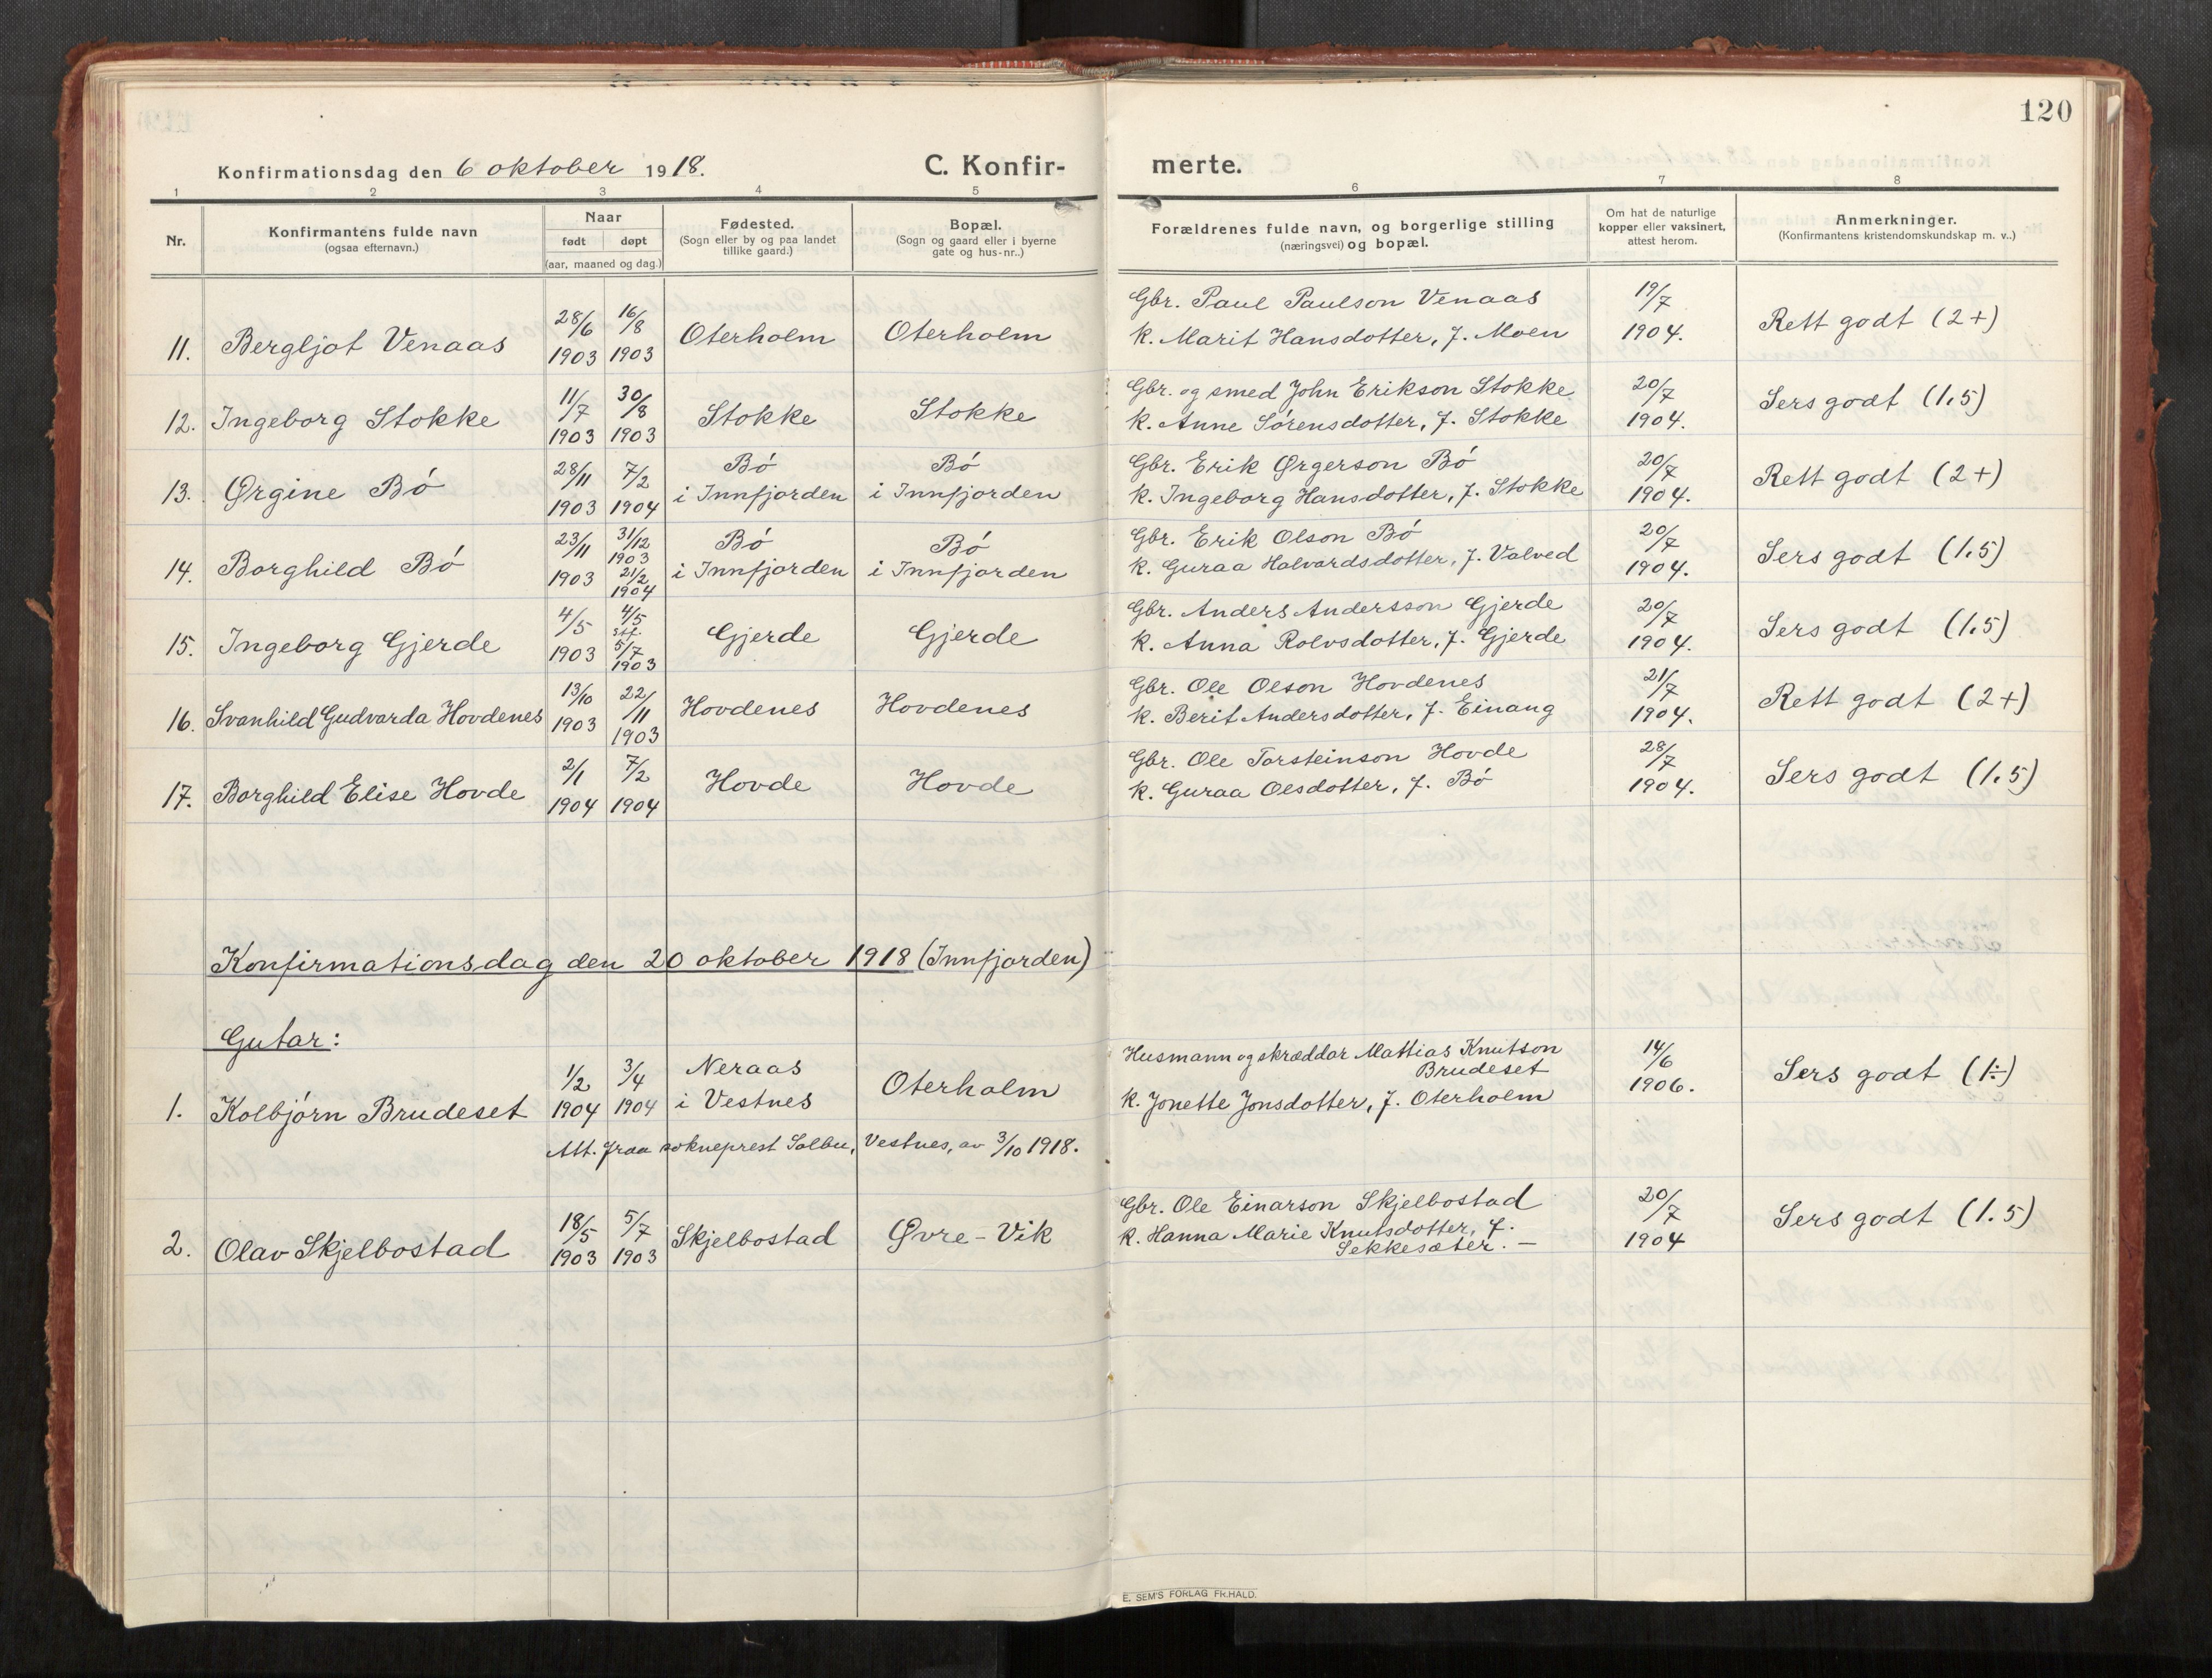 120
Konfirmationsdag den 6 oktober 1918. C. Konfir- merte.
1 2 3 4 5 6 7 8
Nr.
Konfirmantens fulde navn
(ogsaa efternavn.)
Naar
født døpt
(aar, maaned og dag.)
Fødested.
(Sogn eller by og paa landet
tillike gaard.)
Bopæl.
(Sogn og gaard eller i byerne
gate og hus-nr..)
Forældrenes fulde navn, og borgerlige stilling
(næringsvei) og bopæl.
Om hat de naturlige
kopper eller vaksinert,
attest herom.
Anmerkninger.
(Konfirmantens kristendomskundskap m. v..)
11. Bergljot Venaas 28/6 1903 16/8 1903 Oterholm Oterholm
Gbr. Paul Paulson Venaas
k. Marit Hansdotter, f. Moen
19/7 1904.
Rett godt (2+)
12. Ingeborg Stokke 11/7 1903 30/8 1903 Stokke Stokke
Gbr. og smed John Erikson Stokke
k. Anne Sørensdotter, f. Stokke
20/7 1904.
Sers godt (1.5)
13. Ørgine Bó 28/11 1903 7/2 1904
Bó
i Innfjorden
Bó
i Innfjorden
Gbr. Erik Ørgerson Bó
k. Ingeborg Hansdotter, f. Stokke
20/7 1904.
Rett godt (2+)
14. Borghild Bó 23/11 1903
31/12
1903
21/2
1904
Bó
i Innfjorden
Bó
i Innfjorden
Gbr. Erik Olson Bó
k. Guraa Halvardsdotter, f. Valved
20/7 1904.
Sers godt (1.5)
15. Ingeborg Gjerde 4/5 1903
4/5
stf.
5/7
1903
Gjerde Gjerde
Gbr. Anders Andersson Gjerde
k. Anna Rolvsdotter, f. Gjerde
20/7 1904.
Sers godt (1.5)
16. Svanhild Gudvarda Hovdenes 13/10 1903 22/11 1903 Hovdenes Hovdenes
Gbr. Ole Olson Hovdenes
k. Berit Andersdotter, f. Einang
21/7 1904.
Rett godt (2+)
17. Borghild Elise Hovde 2/1 1904 7/2 1904 Hovde Hovde
Gbr. Ole Torsteinson Hovde
k. Guraa Olsdotter, f. Bó
28/7 1904.
Sers godt (1.5)
Konfirmationsdag den 20 oktober 1918 (Innfjorden)
Gutar:
1. Kolbjørn Brudeset 1/2 1904 3/4 1904
Neraas
i Vestnes
Oterholm
Husmann og skræddar Mattias Knutson
Brudeset
k. Jonette Jonsdotter, f. Oterholm
14/6 1906.
Sers godt (1÷)
Att. fraa sokneprest Solbu, Vestnes, av 3/10 1918.
2. Olav Skjelbostad 18/5 1903 5/7 1903 Skjelbostad Øvre-Vik
Gbr. Ole Einarson Skjelbostad
k. Hanna Marie Knutsdotter, f.
Sekkesæter. —
20/7 1904
Sers godt (1.5)
E. SEM'S FORLAG FR.HALD.